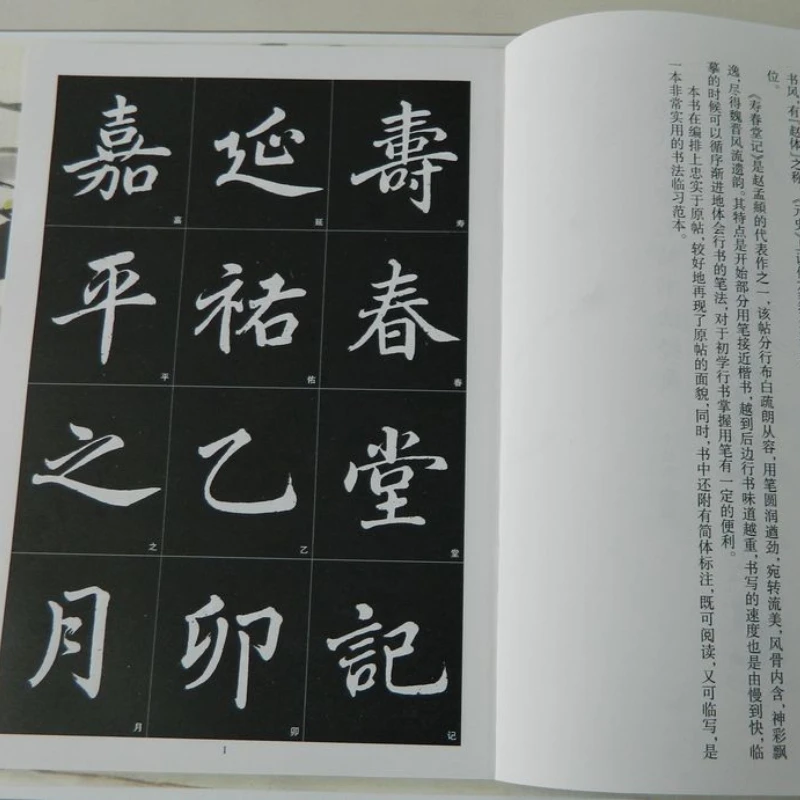 书风，有“赵体”之称。《元史》
位。
《寿春堂记》是赵孟頫的代表作之一，该帖分行布白疏朗从容，用笔圆润遒劲，宛转流美，风骨内含，神彩飘
逸，尽得魏晋风流遗韵。其特点是开始部分用笔接近楷书，越到后边行书味道越重，书写的速度也是由慢到快，临
摹的时候可以循序渐进地体会行书的笔法，对于初学行书掌握用笔有一定的便利。
本书在编排上忠实于原帖，较好地再现了原帖的面貌，同时，书中还附有简体标注，既可阅读，又可临写，是
一本非常实用的书法临习范本。
壽春堂記
寿春堂记
延祐乙卯
延佑乙卯
嘉平之月
嘉平之月
1